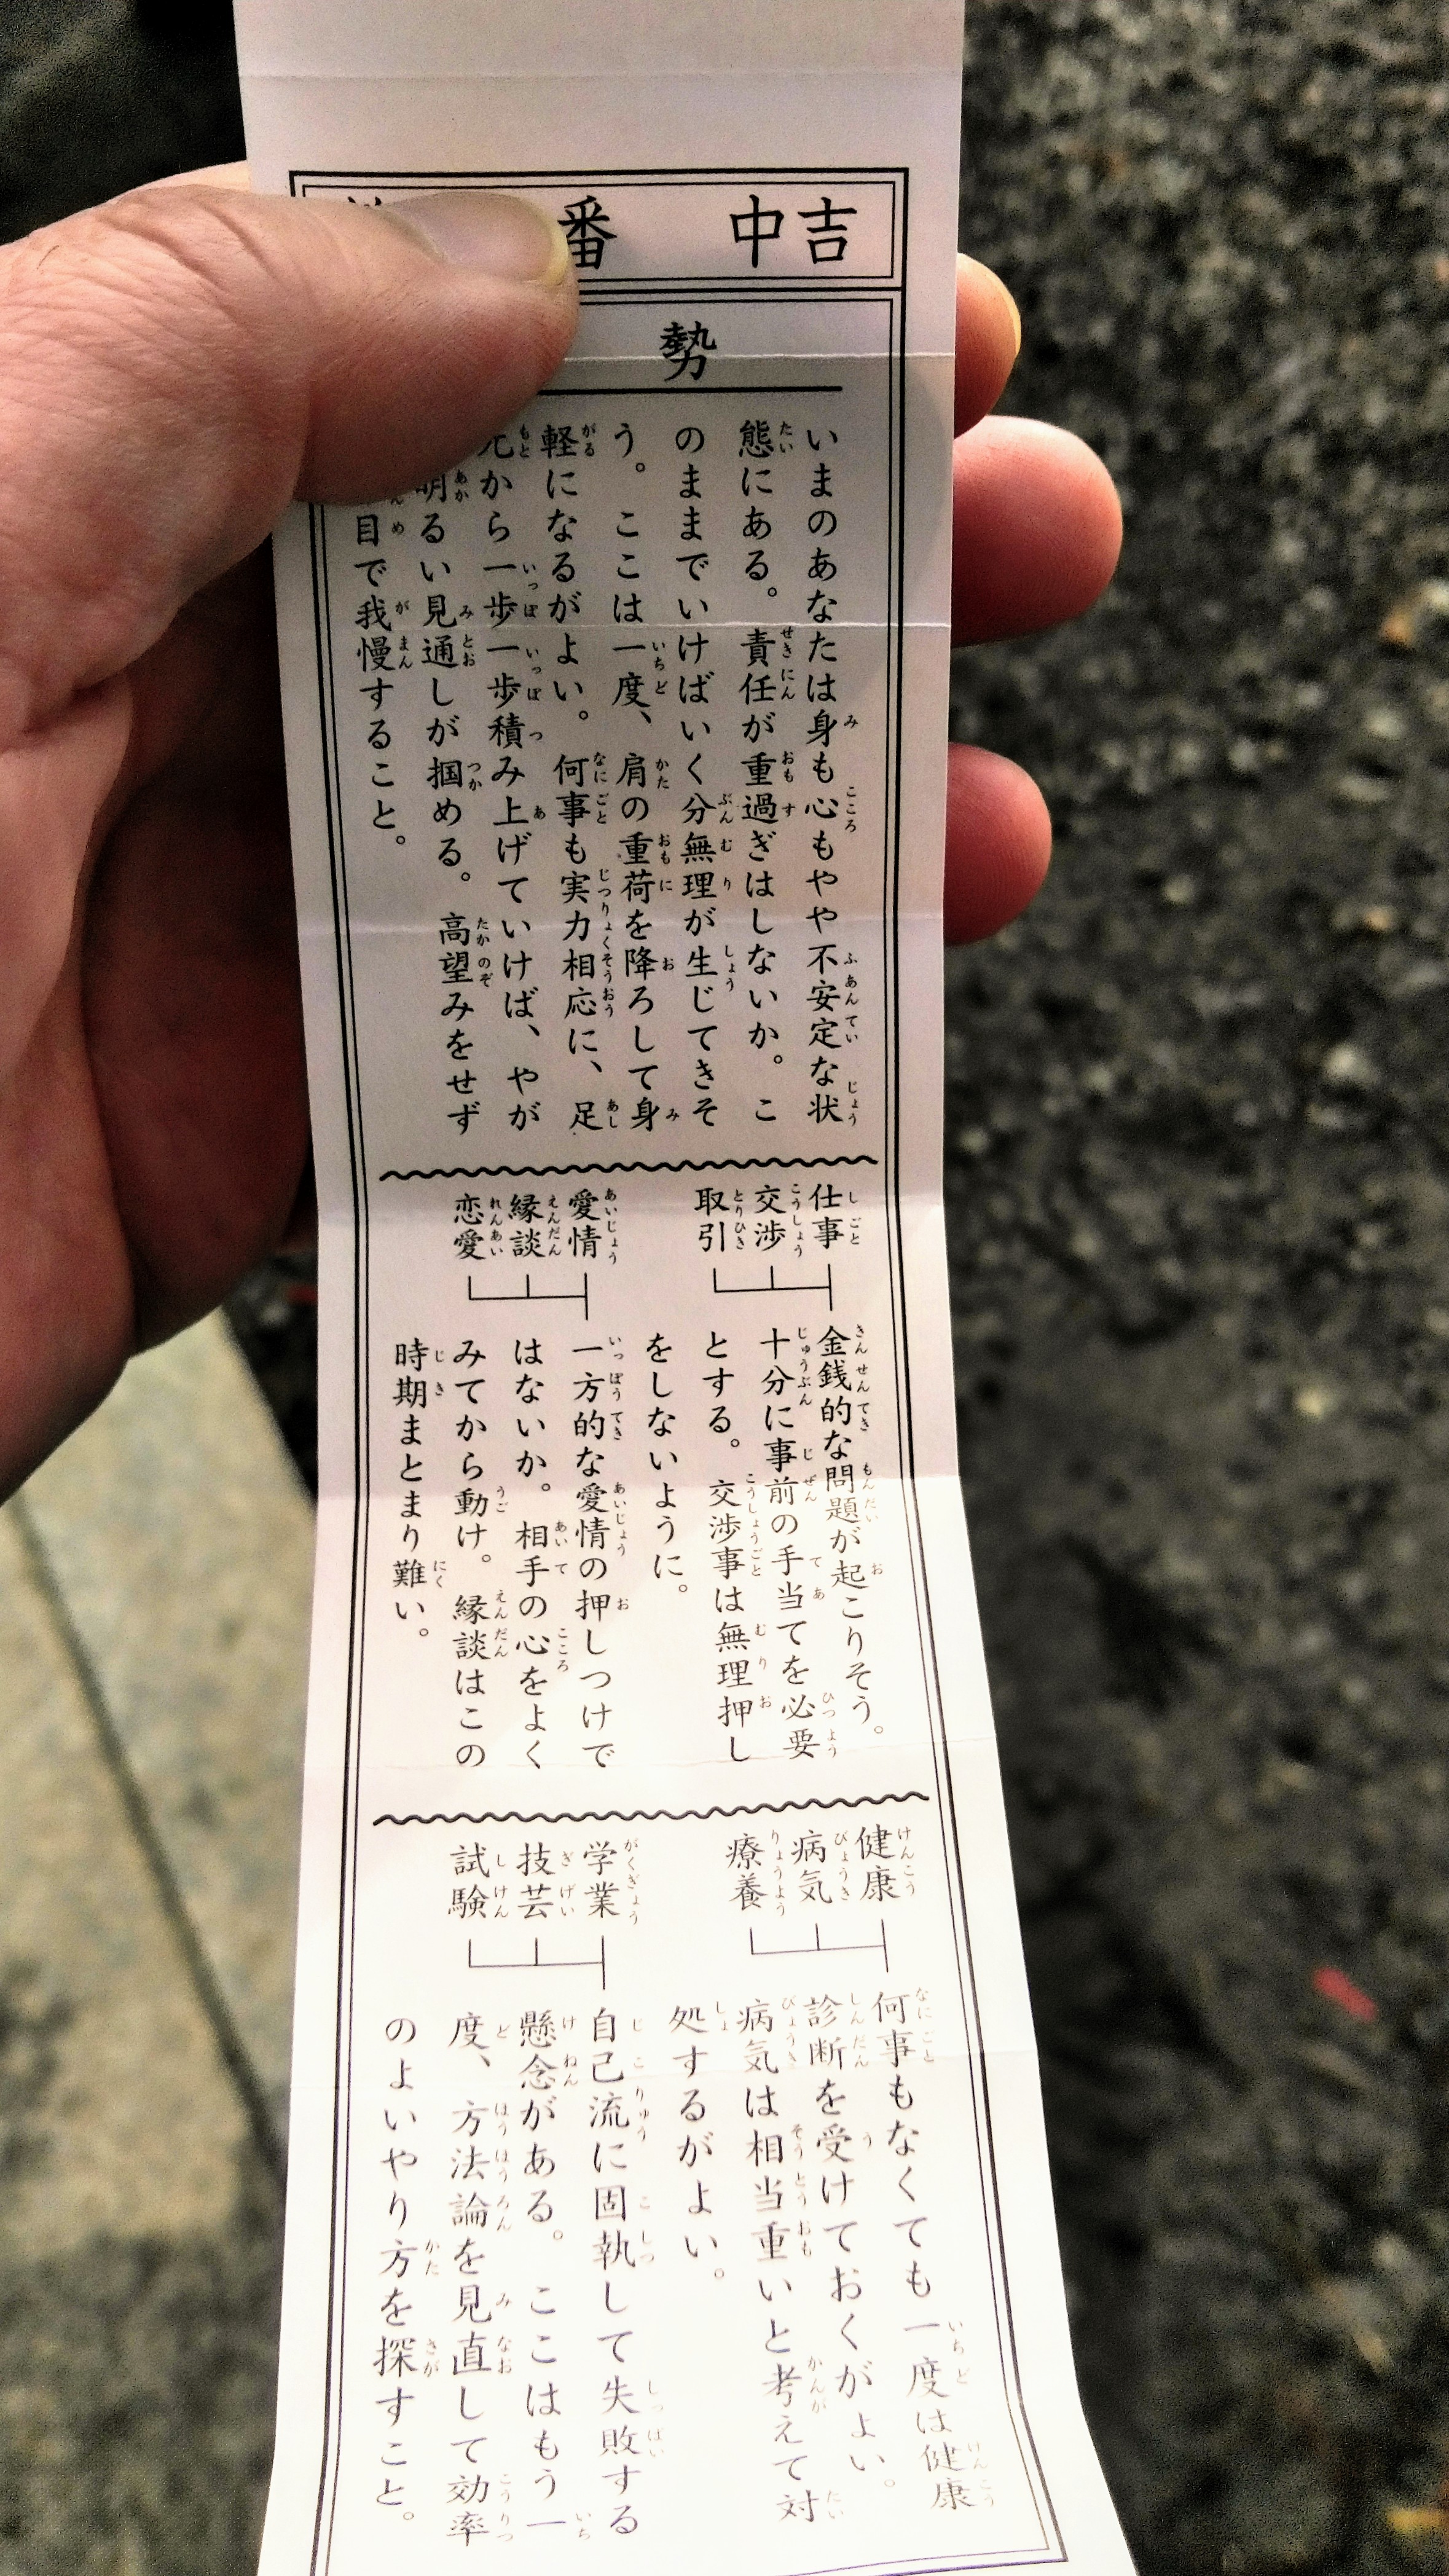 番 中吉
勢
いまのあなたは身も心もやや不安定な状
態にある。責任が重過ぎはしないか。こ
のままでいけばいく分無理が生じてきそ
う。ここは一度、肩の重荷を降ろして身
軽になるがよい。何事も実力相応に、足
元から一歩一歩積み上げていけば、やが
明るい見通しが掴める。高望みをせず
目で我慢すること。
仕事
交渉
取引
金銭的な問題が起こりそう。
十分に事前の手当てを必要
とする。交渉事は無理押し
をしないように。
愛情
縁談
恋愛
一方的な愛情の押しつけで
はないか。相手の心をよく
みてから動け。縁談はこの
時期まとまり難い。
健康
病気
療養
何事もなくても一度は健康
診断を受けておくがよい。
病気は相当重いと考えて対
処するがよい。
学業
技芸
試験
自己流に固執して失敗する
懸念がある。ここはもう一
度、方法論を見直して効率
のよいやり方を探すこと。